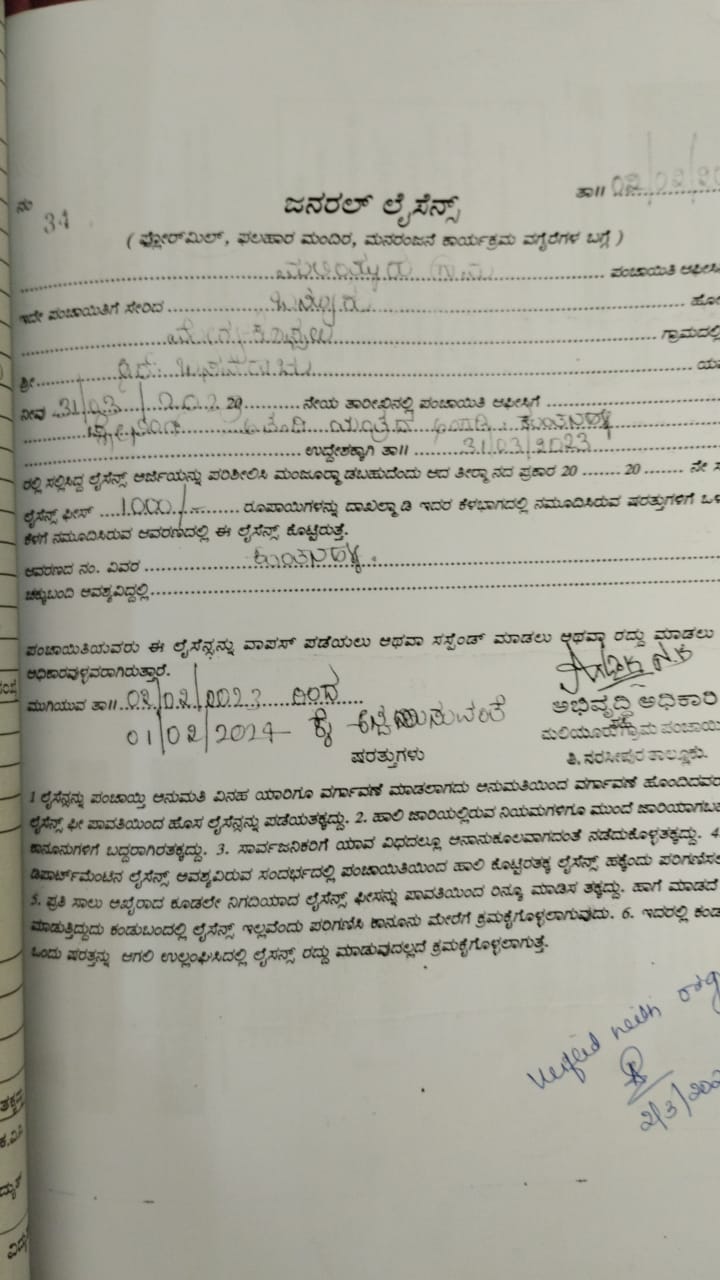 ನಂ 34 ತಾ॥ 02/02/20
ಜನರಲ್ ಲೈಸೆನ್ಸ್
( ಫ್ಲೋರ್‌ಮಿಲ್, ಫಲಹಾರ ಮಂದಿರ, ಮನರಂಜನೆ ಕಾರ್ಯಕ್ರಮ ವಗೈರೆಗಳ ಬಗ್ಗೆ )
ಮಲಿಯೂರು ಗ್ರಾಮ ಪಂಚಾಯಿತಿ ಆಫೀಸಿ
ಇದೇ ಪಂಚಾಯಿತಿಗೆ ಸೇರಿದ ಹೋ
ಗ್ರಾಮದಲ್ಲಿ
ಶ್ರೀ ಯ
ನೀವು 31/03/202 20 ನೇಯ ತಾರೀಖಿನಲ್ಲಿ ಪಂಚಾಯಿತಿ ಆಫೀಸಿಗೆ
ಅಂಗಡಿ
ಉದ್ದೇಶಕ್ಕಾಗಿ ತಾ॥ 31/03/2023
ರಲ್ಲಿ ಸಲ್ಲಿಸಿದ್ದ ಲೈಸೆನ್ಸ್ ಅರ್ಜಿಯನ್ನು ಪರಿಶೀಲಿಸಿ ಮಂಜೂರ್‍ಮಾಡಬಹುದೆಂದು ಆದ ತೀರ್ಮಾನದ ಪ್ರಕಾರ 20 ........ 20 ........ ನೇ ಸ
ಲೈಸೆನ್ಸ್ ಫೀಸ್ 1000/- ರೂಪಾಯಿಗಳನ್ನು ದಾಖಲ್ಮಾಡಿ ಇದರ ಕೆಳಭಾಗದಲ್ಲಿ ನಮೂದಿಸಿರುವ ಷರತ್ತುಗಳಿಗೆ ಒಳ
ಕೆಳಗೆ ನಮೂದಿಸಿರುವ ಆವರಣದಲ್ಲಿ ಈ ಲೈಸೆನ್ಸ್ ಕೊಟ್ಟಿರುತ್ತೆ.
ಆವರಣದ ನಂ. ವಿವರ
ಚಕ್ಕುಬಂದಿ ಆವಶ್ಯವಿದ್ದಲ್ಲಿ
ಪಂಚಾಯಿತಿಯವರು ಈ ಲೈಸೆನ್ಸನ್ನು ವಾಪಸ್ ಪಡೆಯಲು ಅಥವಾ ಸಸ್ಪೆಂಡ್ ಮಾಡಲು ಅಥವಾ ರದ್ದು ಮಾಡಲು
ಅಧಿಕಾರವುಳ್ಳವರಾಗಿರುತ್ತಾರೆ.
ಮುಗಿಯುವ ತಾ॥ 02/02/2023 ರಿಂದ
01/02/2024 ಕ್ಕೆ ಅನ್ವಯಿಸುವಂತೆ
ಅಭಿವೃದ್ಧಿ ಅಧಿಕಾರಿ
ಮಲಿಯೂರು ಗ್ರಾಮ ಪಂಚಾಯಿ
ತಿ. ನರಸೀಪುರ ತಾಲ್ಲೂಕು.
ಷರತ್ತುಗಳು
1 ಲೈಸೆನ್ಸನ್ನು ಪಂಚಾಯ್ತಿ ಅನುಮತಿ ವಿನಹ ಯಾರಿಗೂ ವರ್ಗಾವಣೆ ಮಾಡಲಾಗದು ಅನುಮತಿಯಿಂದ ವರ್ಗಾವಣೆ ಹೊಂದಿದವರ
ಲೈಸೆನ್ಸ್ ಫೀ ಪಾವತಿಯಿಂದ ಹೊಸ ಲೈಸೆನ್ಸನ್ನು ಪಡೆಯತಕ್ಕದ್ದು. 2. ಹಾಲಿ ಜಾರಿಯಲ್ಲಿರುವ ನಿಯಮಗಳಿಗೂ ಮುಂದೆ ಜಾರಿಯಾಗಬ
ಕಾನೂನುಗಳಿಗೆ ಬದ್ದರಾಗಿರತಕ್ಕದ್ದು. 3. ಸಾರ್ವಜನಿಕರಿಗೆ ಯಾವ ವಿಧದಲ್ಲೂ ಅನಾನುಕೂಲವಾಗದಂತೆ ನಡೆದುಕೊಳ್ಳತಕ್ಕದ್ದು. 4
ಡಿಪಾರ್ಟ್‌ಮೆಂಟಿನ ಲೈಸೆನ್ಸ್ ಆವಶ್ಯವಿರುವ ಸಂದರ್ಭದಲ್ಲಿ ಪಂಚಾಯಿತಿಯಿಂದ ಹಾಲಿ ಕೊಟ್ಟಿರತಕ್ಕ ಲೈಸೆನ್ಸ್ ಹಕ್ಕೆಂದು ಪರಿಗಣಿಸಲ
5. ಪ್ರತಿ ಸಾಲು ಅಖೈರಾದ ಕೂಡಲೇ ನಿಗದಿಯಾದ ಲೈಸೆನ್ಸ್ ಫೀಸನ್ನು ಪಾವತಿಯಿಂದ ರಿನ್ಯೂ ಮಾಡಿಸ ತಕ್ಕದ್ದು. ಹಾಗೆ ಮಾಡದೆ
ಮಾಡುತ್ತಿದ್ದುದು ಕಂಡುಬಂದಲ್ಲಿ ಲೈಸೆನ್ಸ್ ಇಲ್ಲವೆಂದು ಪರಿಗಣಿಸಿ ಕಾನೂನು ಮೇರೆಗೆ ಕ್ರಮಕೈಗೊಳ್ಳಲಾಗುವುದು. 6. ಇದರಲ್ಲಿ ಕಂಡ
ಒಂದು ಷರತ್ತನ್ನು ಆಗಲಿ ಉಲ್ಲಂಘಿಸಿದಲ್ಲಿ ಲೈಸನ್ಸ್ ರದ್ದು ಮಾಡುವುದಲ್ಲದೆ ಕ್ರಮಕೈಗೊಳ್ಳಲಾಗುತ್ತೆ.
Verified with org
2/3/202